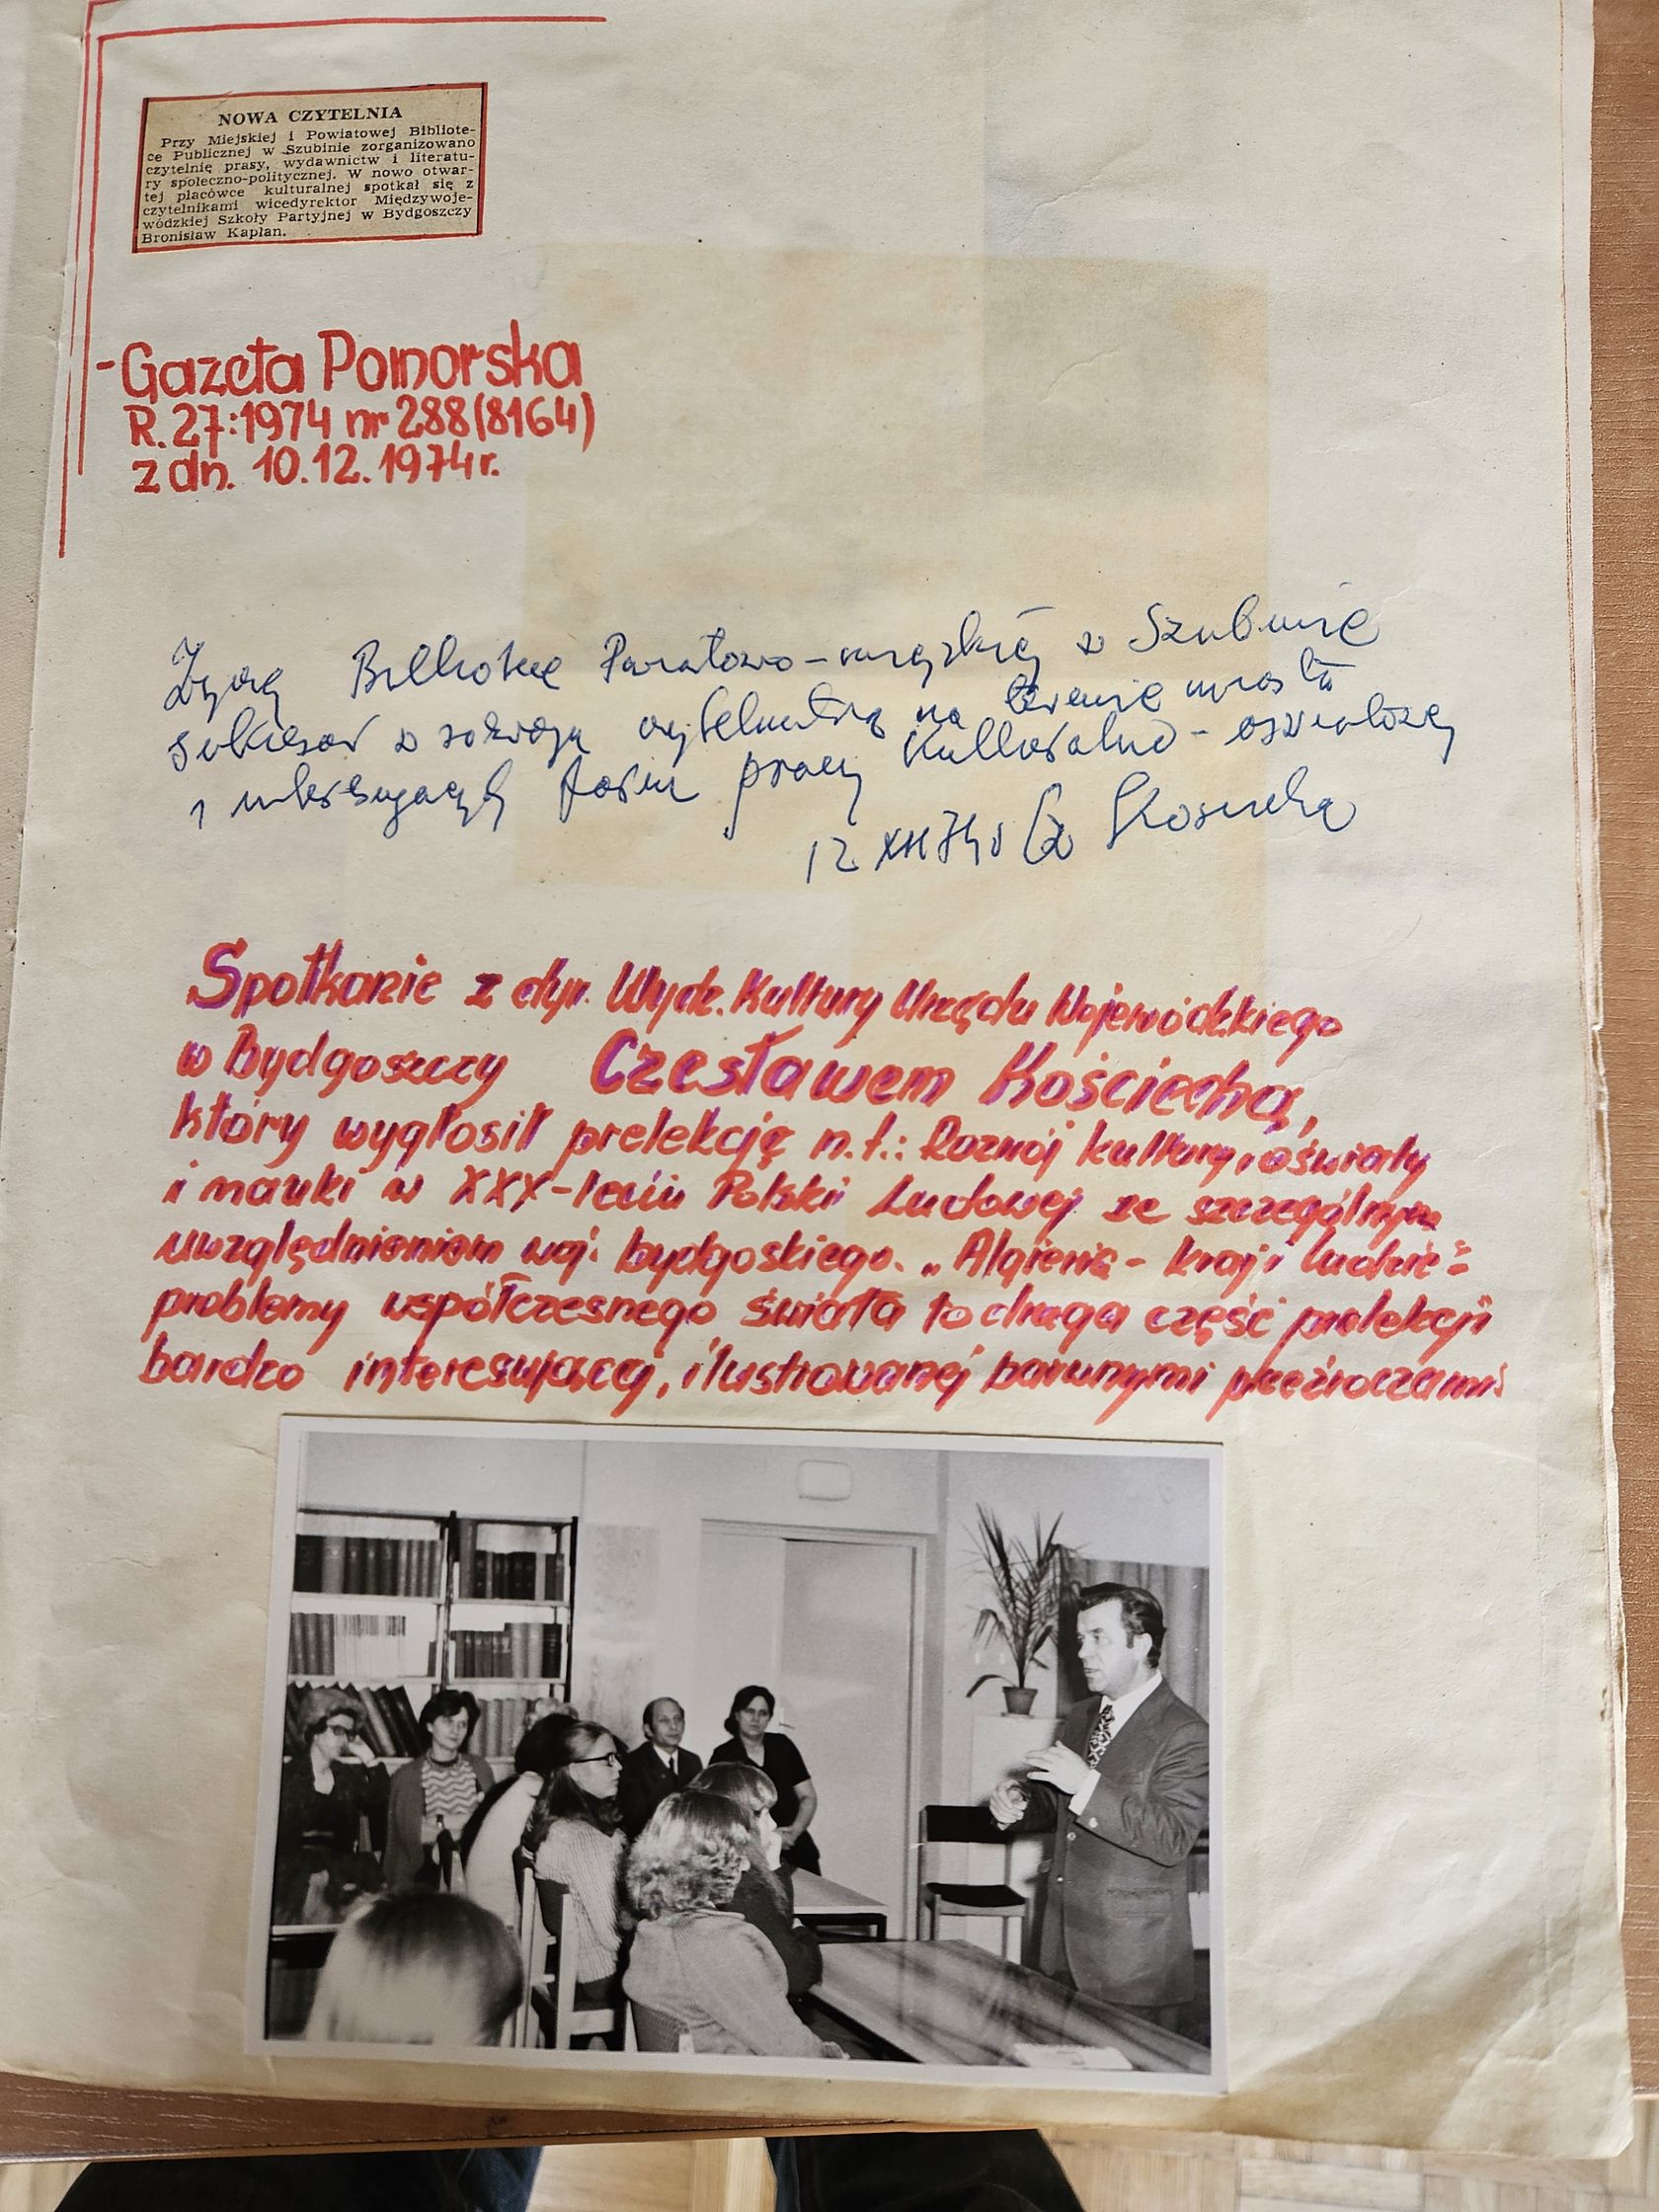 NOWA CZYTELNIA
Przy Miejskiej i Powiatowej Bibliote-
ce Publicznej w Szubinie zorganizowano
czytelnię prasy, wydawnictw i literatu-
ry społeczno-politycznej. W nowo otwar-
tej placówce kulturalnej spotkał się z
czytelnikami wicedyrektor Międzywoje-
wódzkiej Szkoły Partyjnej w Bydgoszczy
Bronisław Kapłan.
- Gazeta Pomorska
R. 27:1974 nr 288 (8164)
z dn. 10.12.1974r.
Życzę Bibliotece Powiatowo-miejskiej w Szubinie
sukcesów w rozwoju czytelnictwa na terenie miasta
i interesujących form pracy kulturalno-oświatowej
12 XII 74 r Cz
Spotkanie z dyr. Wydz. Kultury Urzędu Wojewódzkiego
w Bydgoszczy Czesławem Kościechą,
który wygłosił prelekcję n.t.: Rozwój kultury, oświaty
i nauki w XXX-leciu Polski Ludowej ze szczególnym
uwzględnieniem woj. bydgoskiego. „Algieria - kraj i ludzie" -
problemy współczesnego świata to druga część prelekcji
bardzo interesującej, ilustrowanej barwnymi przeźroczami.